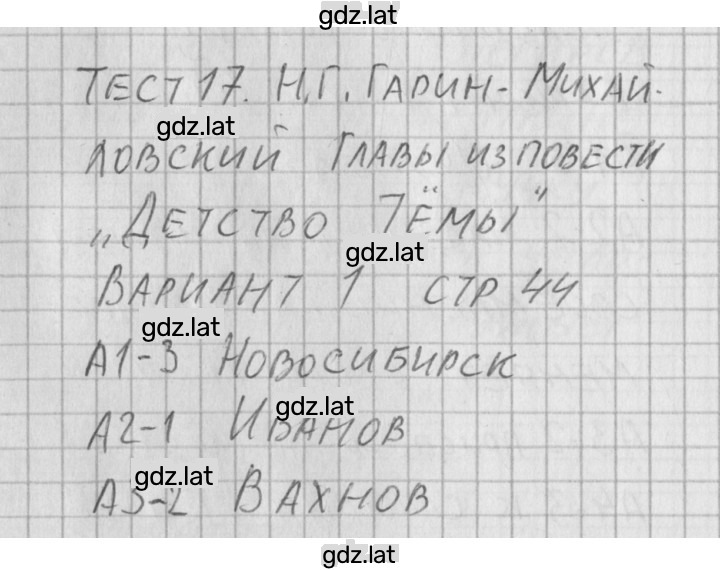 gdz.lat
Тест 17. Н.Г. Гарин-Михай-
gdz.lat
ловский Главы из повести
„Детство Тёмы"
gdz.lat
Вариант 1 стр 44
gdz.lat
А1-3 Новосибирск
gdz.lat
А2-1 Иванов
gdz.lat
А3-2 Вахнов
gdz.lat